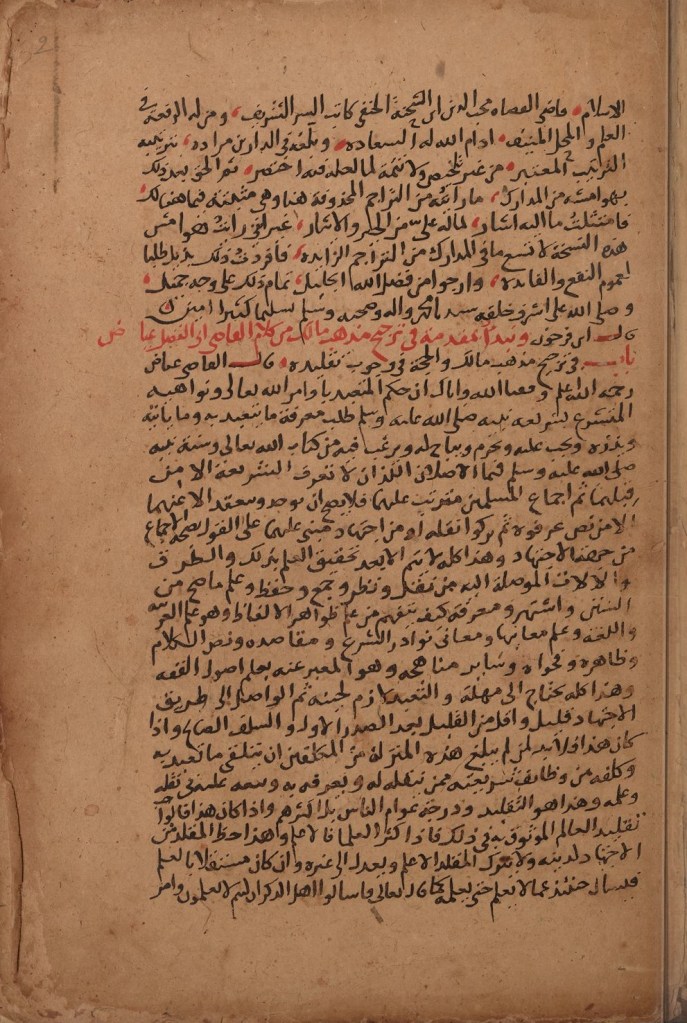 الاسلام قاضى القضاه محب الدين ابن الشحنة الحنفى كاتب السر الشريف ومن له الرفعة فى
العلم والمحل المنيف ادام الله له السعاده وبلغه فى الدارين مراده بترتيبه
الترتيب المعتبر من غير تلخيص ولا تتمة لما لعله فيه اختصر ثم الحق بعد ذلك
بهوامشه من المدارك ما راىته من التراجم المحذوفة هنا وهى مثبتة فيما هنالك
فامتثلت ما اليه اشار لما له على من الحلم والايثار غير انى رايت هوامش
هذه النسخة لا تسع ما فى المدارك من التراجم الزايده فافردت ذلك بذيل طلبا
لعموم النفع والفايده وارجوا من فضل الله الجليل تمام ذلك على وجه جميل
وصلى الله على اشرف خلقه سيدنا محمد واله وصحبه وسلم تسليما كثيرا امين
قال ابن فرحون ونبدا بمقدمة فى ترجيح مذهب مالك من كلام القاضى ابى الفضل عياض
باب فى ترجيح مذهب مالك والحجة فى وجوب تقليده قال القاضى عياض
رحمه الله اعلم وفقنا الله واياك ان حكم المتعبد باوامر الله تعالى ونواهيه
المتشرع بشريعة نبيه صلى الله عليه وسلم طلب معرفة ما يتعبد به وما ياتيه
ويذره ويجب عليه ويحرم ويباح له ويرغب فيه من كتاب الله تعالى وسنة نبيه
صلى الله عليه وسلم فهما الاصلان اللذان لا تعرف الشريعة الا من
قبلهما ثم اجماع المسلمين مترتب عليهما فلا يصح ان يوجد وينعقد الا عنهما
اما من نص عرفوه ثم تركوا نقله او من اجتهاد مبنى عليهما على القول بصحة الاجماع
من جهة الاجتهاد وهذا كله لا يتم الا بعد تحقيق العلم بذلك والطرق
والالات الموصلة اليه من نقل ونظر وجمع وحفظ وعلم ما صح من
السنن واشتهر ومعرفة كيف يتفهم من علم ظواهر الالفاظ وهو علم العربيه
واللغة وعلم معانيها ومعانى نوادر الشرع ومقاصده ونص الكلام
وظاهره وفحواه وساير مناهجه وهو المعبر عنه بعلم اصول الفقه
وهذا كله يحتاج الى مهلة والتعبد لازم لحينه ثم الواصل الى طريق
الاجتهاد قليل واقل من القليل بعد الصدر الاول والسلف الصالح واذا
كان هذا فلا بد لمن لم يبلغ هذه المنزلة من المكلفين ان يتلقى ما تعبد به
وكلفه من وظايف شريعته ممن ينقله له ويعرفه به وىىىه عليه فى نقله
وعلمه وهذا هو التقليد ودرجة عوام الناس بل اكثرهم واذا كان هذا فالواجب
تقليد العالم الموثوق به فى ذلك فاذا كثر العلما فالاعلم وهذا حظ المقلد من
الاجتهاد لدينه ولا يترك المقلد الاعلم ويعدل الى غيره وان كان مستقلا بالعلم
فيسال حينئذ عما لا يعلم حتى يعلمه قال تعالى فاسالوا اهل الذكر ان كنتم لا تعلمون وامر